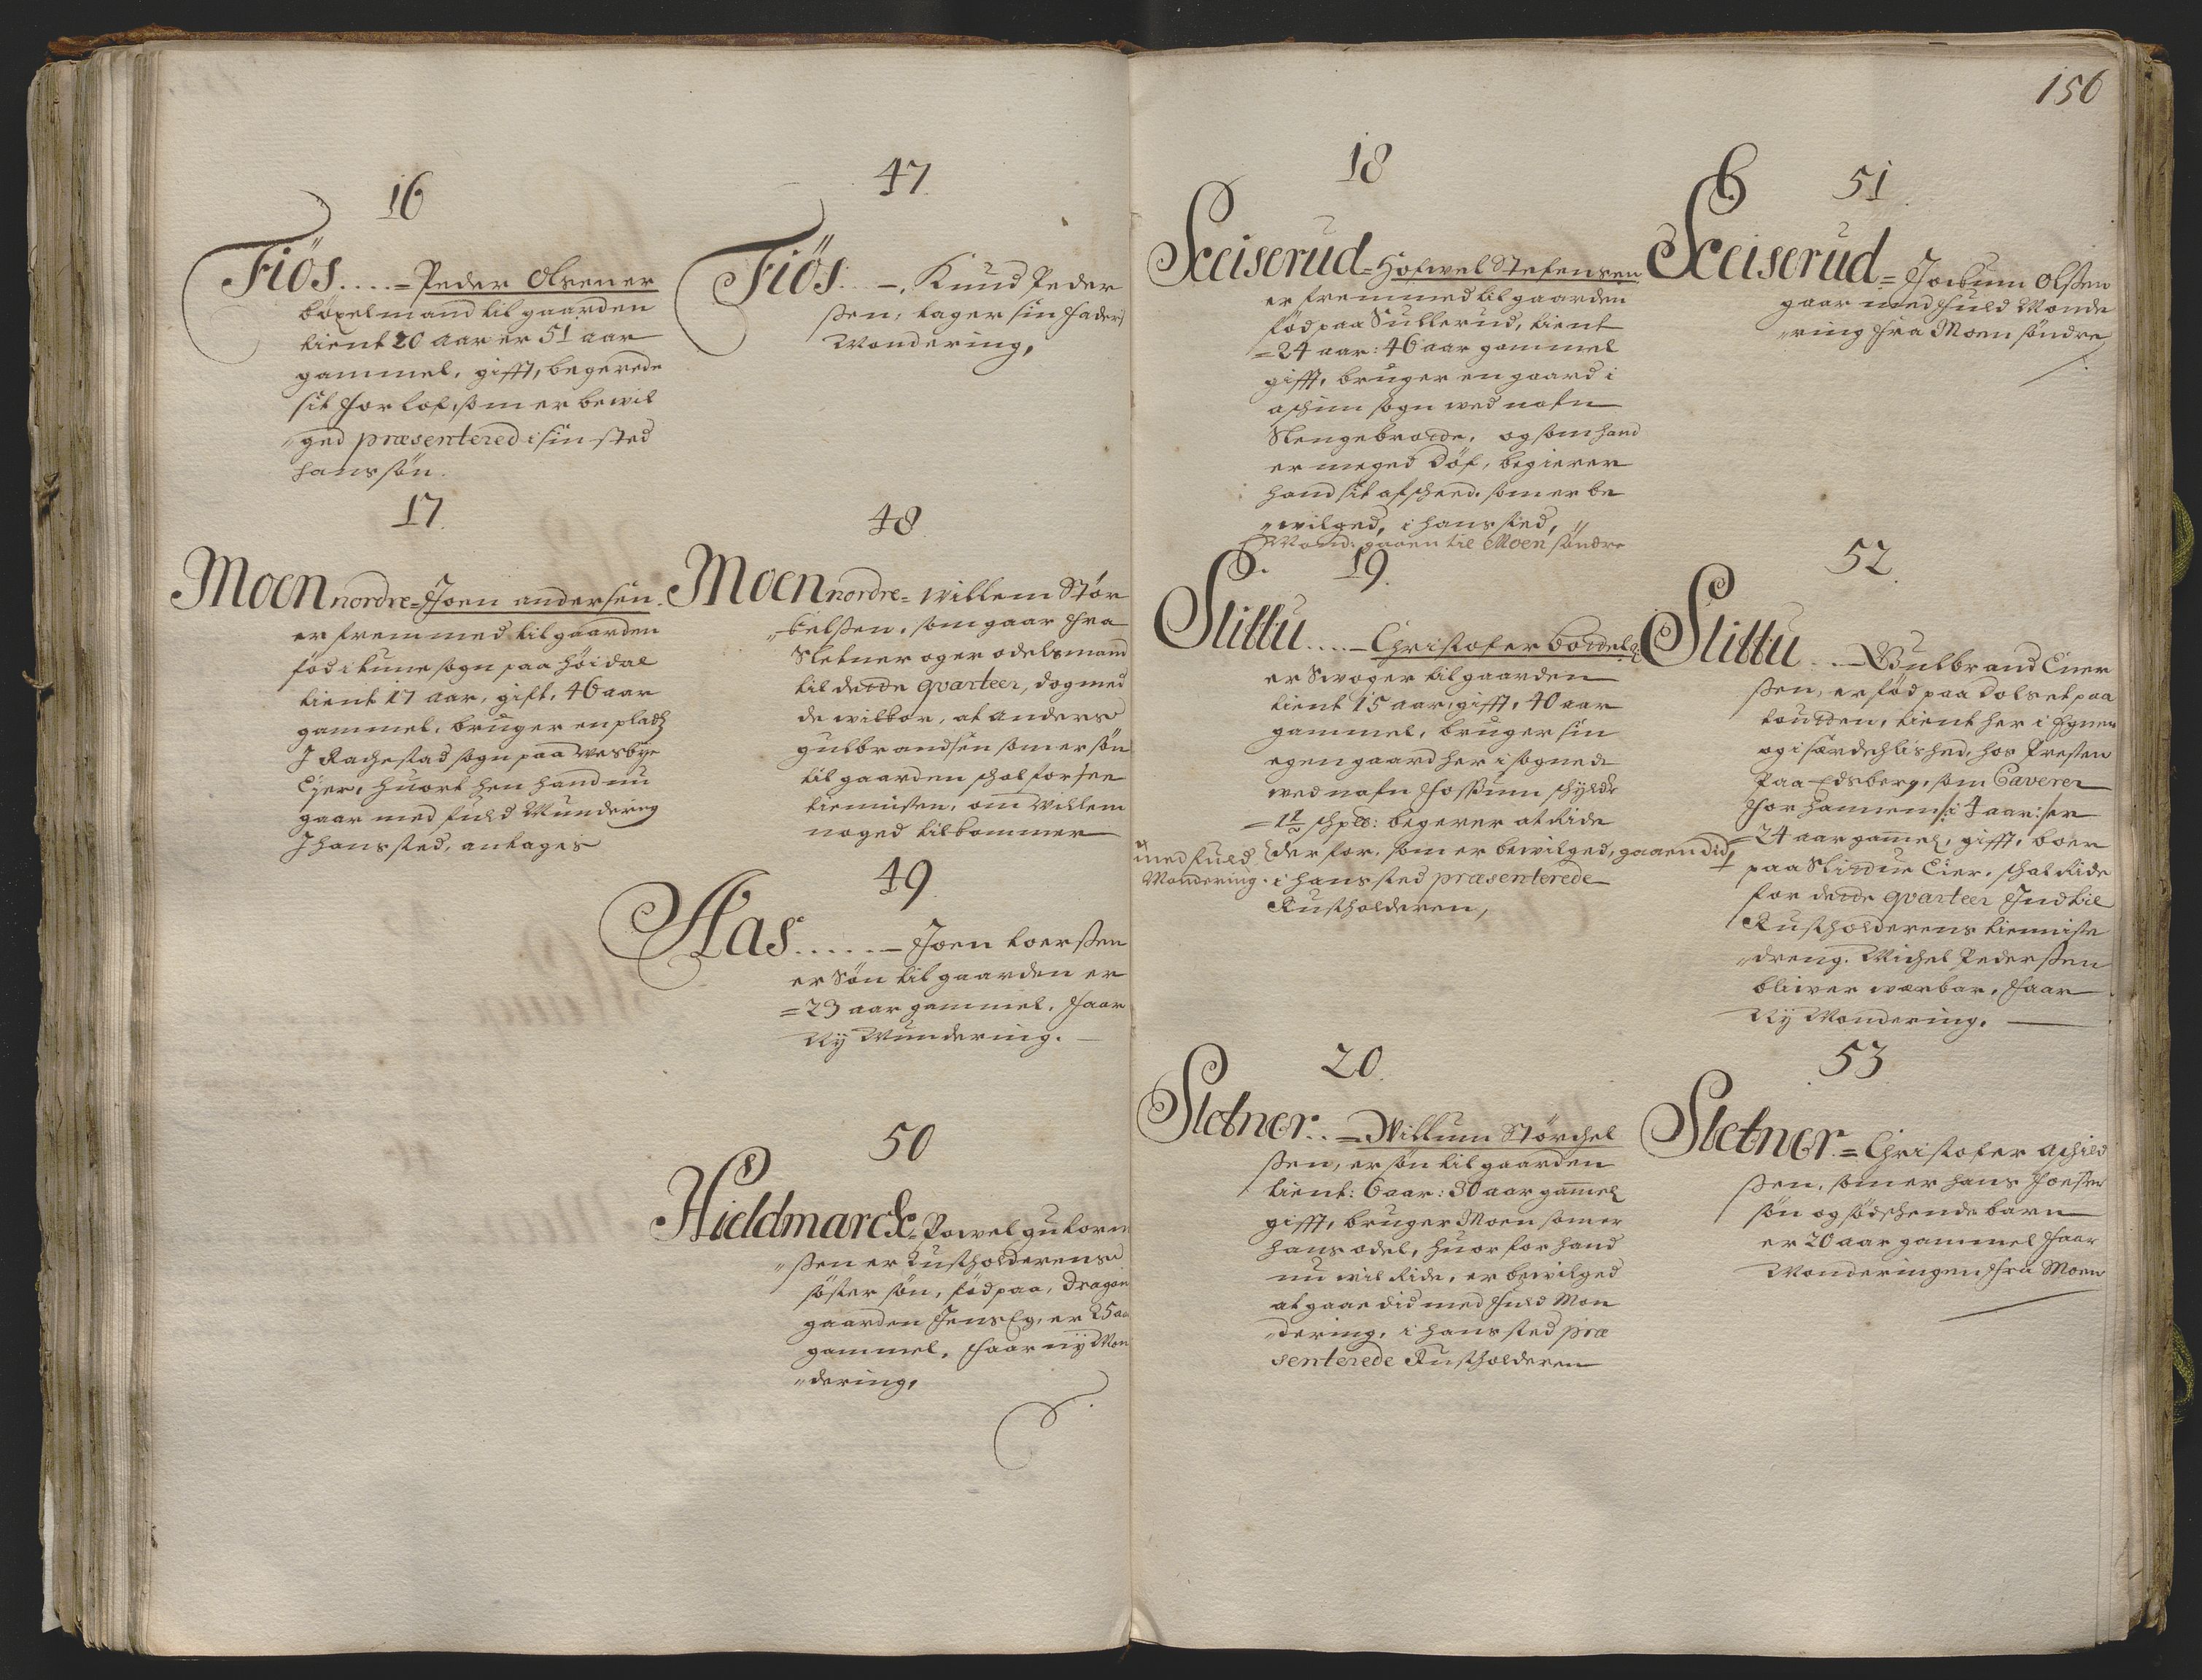 16
Fiös....= Peder Olsen er
böxelmand til gaarden
tient 20 aar er 51 aar
gammel, gifft, begerede
sit forlof, som er bevil
"ged præsentered i sin sted
hans sön.
17.
Moen nordre = Joen andersen.
er fremmed til gaarden
föd i tune sogn paa höidal
tient 17 aar, gift, 46 aar
gammel, bruger en pladtz
J Rachestad sogn paa Wesbye
Ejer, huort hen hand nu
gaar med fuld Mundering
J hans sted, antages
47.
Fiös...=. Knud Peder
ßen, tager sin faders
Mondering,
48.
Moen nordre = Willem Stör
"kelßen, som gaar fra
Sletner og er odelsmand
til dette qvarteer, dog med
de wilkor, at anders
gulbrandsen som er sön
til gaarden schal forsee
tiennisten, om Willem
noged tilkommer
49
Aas.....= Joen toersßen
er Sön til gaarden er
=23 aar gammel, faar
Nÿ Mundering.
50
Hieldmarck = Powel gutorm
"ßen er Rustholderens
söster sön, föd paa, Dragon
gaarden Jens Eg, er 25 aa
gammel, faar nÿ Mon
"dering,
156
18
Sceiserud = Hofwel Stefensen
er fremmed til gaarden
föd paa Sullerud, tient
=24 aar: 46 aar gammel
gifft, bruger en gaard i
aschim sogn ved nafn
Slengebraate, og som hand
er meged Döf, begierer
hand sit afscheed, som er be
"vilged, i hans sted,
Mond: gaaen til Moen söndre
19.
Slittu....= Christofer
er Swoger til gaarden
tient 15 aar, gifft, 40 aar
gammel, bruger sin
egen gaard her i sognet
wed nafn Fossum schÿlde
begerer at Ride
derfor, som er bewilged, gaaen did,
med fuld
Mondering. i hans sted præsenterede
Rustholderen,
20.
Sletner..= Willum Störchel
ßen, er sön til gaarden
tient: 6 aar: 30 aar gamel
gifft, bruger Moen som er
hans odel, huorfor hand
nu wil Ride, er bewilged
at gaae did med fuld Mon
"dering, i hans sted præ
senterede Rustholderen
51.
Sceiserud = Jockum Olßen
gaar med fuld Monde
"ring fra Moen söndre
52.
Slittu...= Gulbrand Einer
ßen, er föd paa Dolset paa
tient her i Egnen
og i særdschlished, hos Presten
paa Edsberg, som Caverer
for hannem /: i 4 aar:/ er
=24 aar gamel, gifft, boer
paa Slittue Eier, schal Ride
for dette qvarteer Indtil
Rustholderens tieniste
"dreng, Michel Pederßen
bliwer værbar, faar
Nÿ Mondering.
53
Sletner = Christofer aschild
ßen, som er hans Foester
sön og södschende barn
er 20 aar gammel faar
Monderingen fra Moen